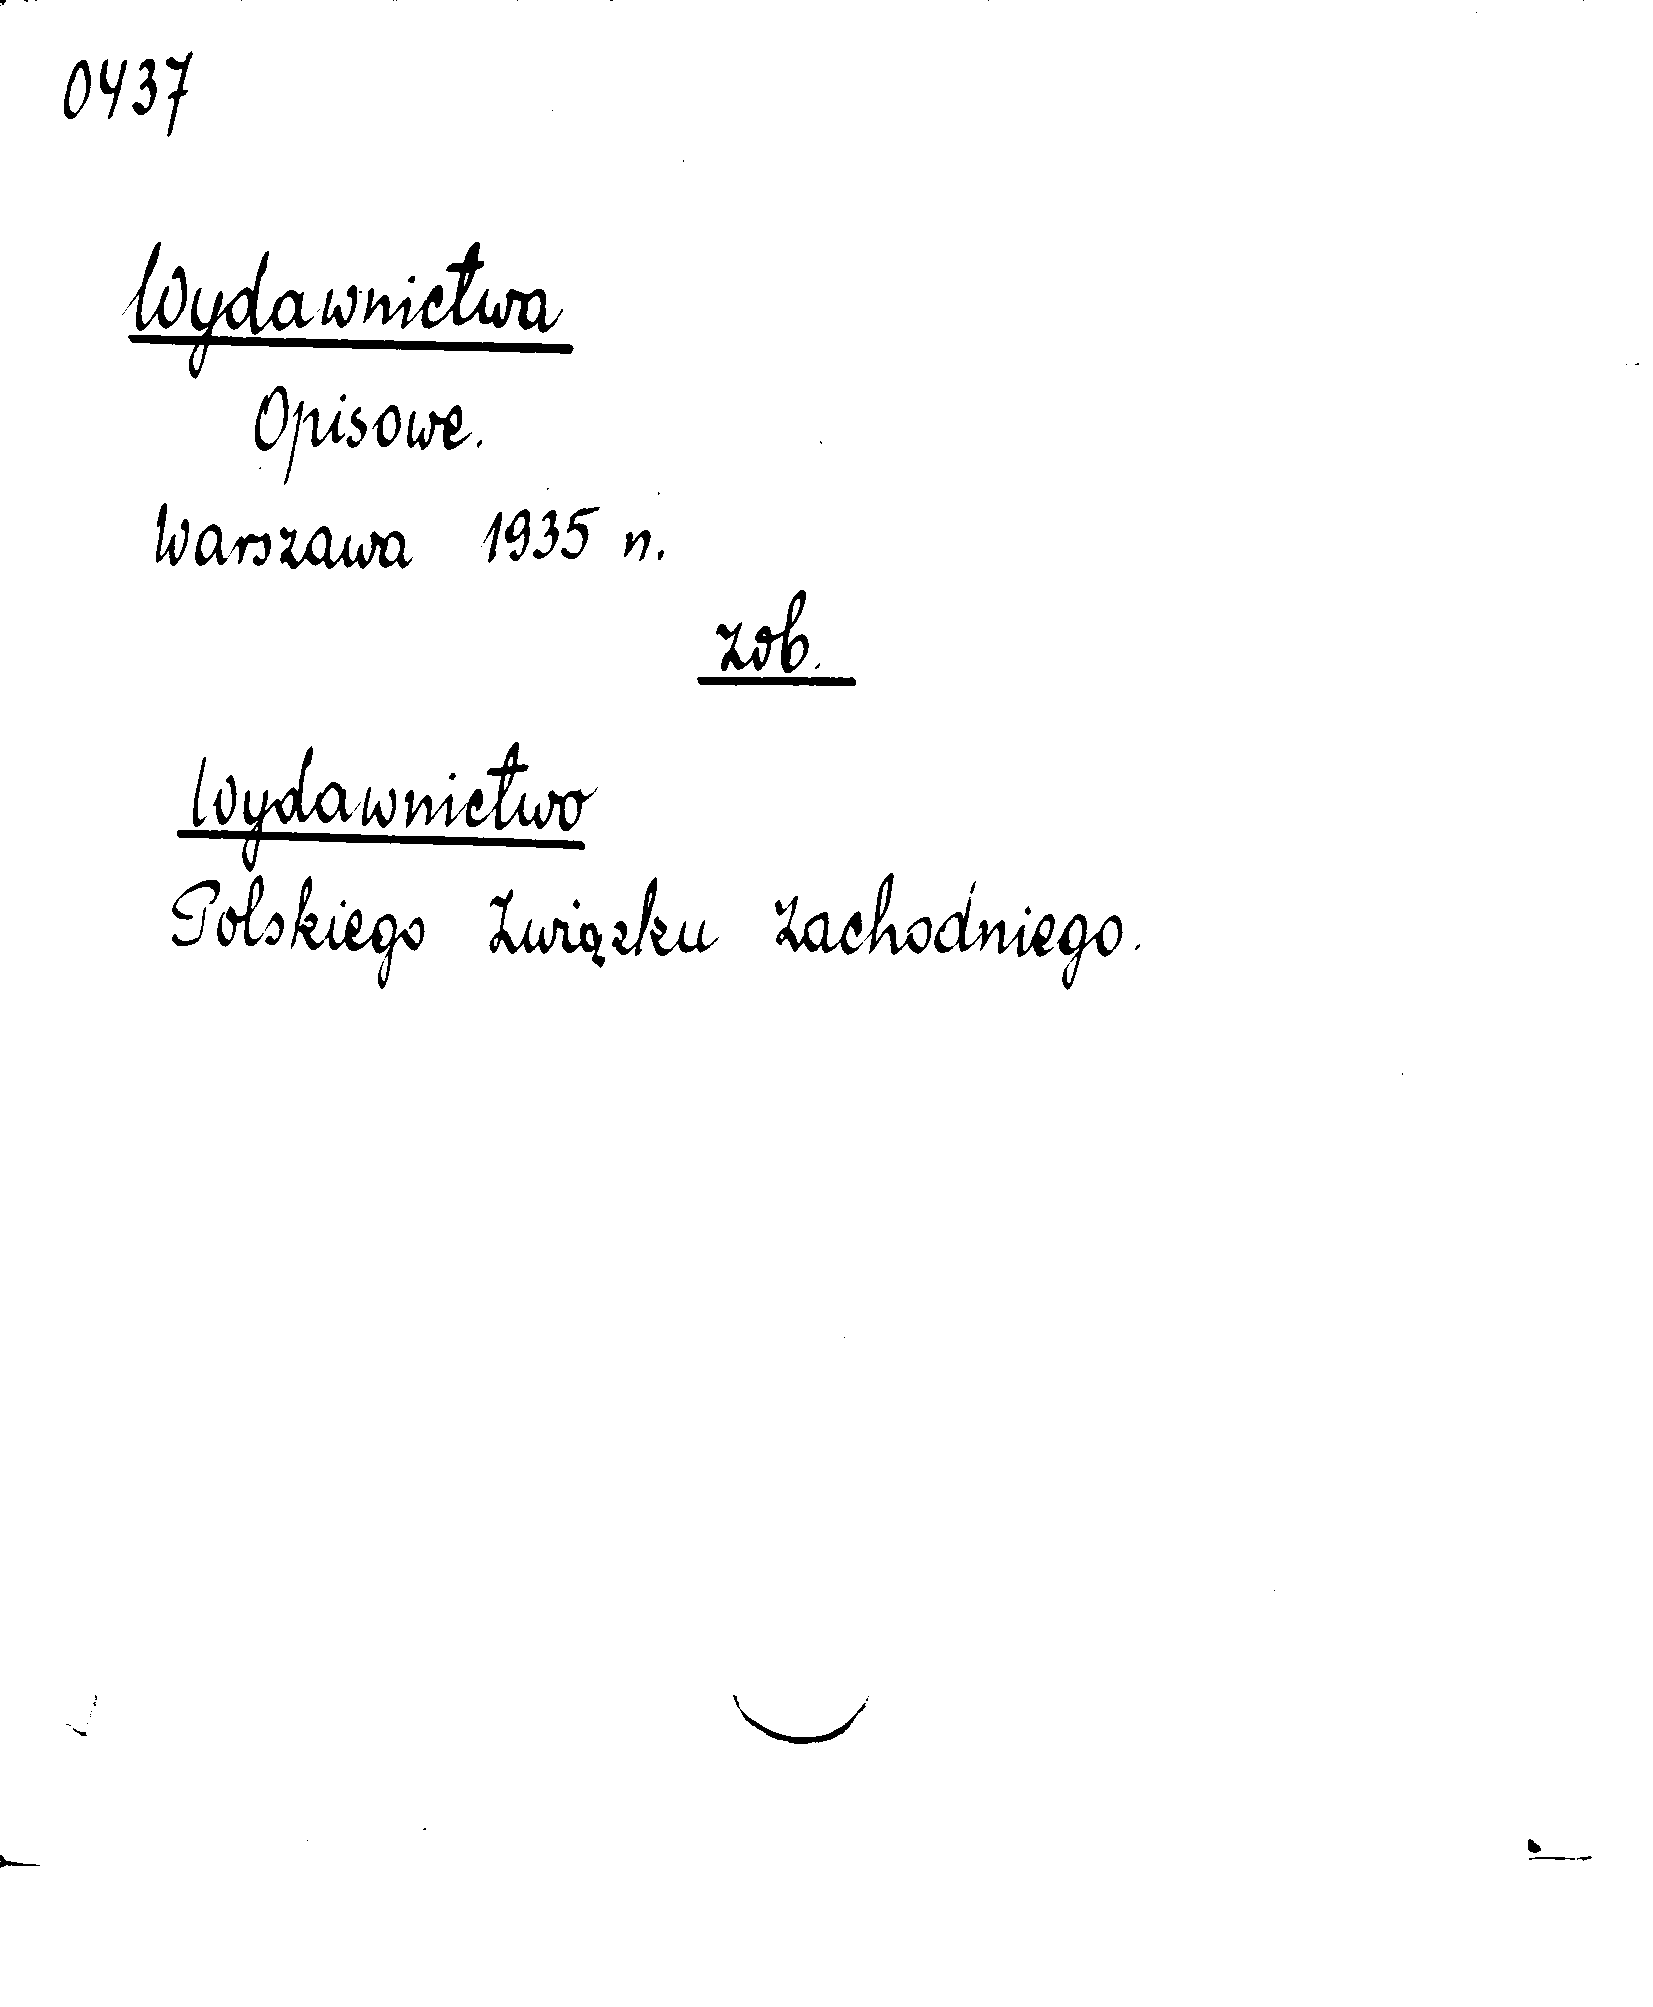 0437
Wydawnictwa
Opisowe.
Warszawa 1935 n.
zob.
Wydawnictwo
Polskiego Związku Zachodniego.